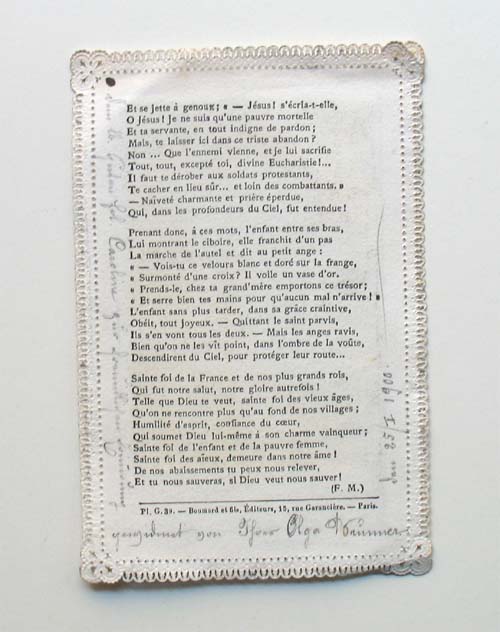 Et se jette à genoux; « — Jésus! s'écria-t-elle,
O Jésus! Je ne suis qu'une pauvre mortelle
Et ta servante, en tout indigne de pardon;
Mais, te laisser ici dans ce triste abandon?
Non ... Que l'ennemi vienne, et je lui sacrifie
Tout, tout, excepté toi, divine Eucharistie!...
Il faut te dérober aux soldats protestants,
Te cacher en lieu sûr... et loin des combattants. »
— Naïveté charmante et prière éperdue,
Qui, dans les profondeurs du Ciel, fut entendue!
Prenant donc, à ces mots, l'enfant entre ses bras,
Lui montrant le ciboire, elle franchit d'un pas
La marche de l'autel et dit au petit ange :
« — Vois-tu ce velours blanc et doré sur la frange,
« Surmonté d'une croix? Il voile un vase d'or.
« Prends-le, chez ta grand'mère emportons ce trésor;
« Et serre bien tes mains pour qu'aucun mal n'arrive! »
L'enfant sans plus tarder, dans sa grâce craintive,
Obéit, tout joyeux. — Quittant le saint parvis,
Ils s'en vont tous les deux. — Mais les anges ravis,
Bien qu'on ne les vît point, dans l'ombre de la voûte,
Descendirent du Ciel, pour protéger leur route...
Sainte foi de la France et de nos plus grands rois,
Qui fut notre salut, notre gloire autrefois!
Telle que Dieu te veut, sainte foi des vieux âges,
Qu'on ne rencontre plus qu'au fond de nos villages;
Humilité d'esprit, confiance du cœur,
Qui soumet Dieu lui-même à son charme vainqueur;
Sainte foi de l'enfant et de la pauvre femme,
Sainte foi des aïeux, demeure dans notre âme!
De nos abaissements tu peux nous relever,
Et tu nous sauveras, si Dieu veut nous sauver!
(F. M.)
Pl. G. 39. — Boumard et fils, Éditeurs, 15, rue Garancière. — Paris.
gewidmet von Olga
Caroline zur
1900